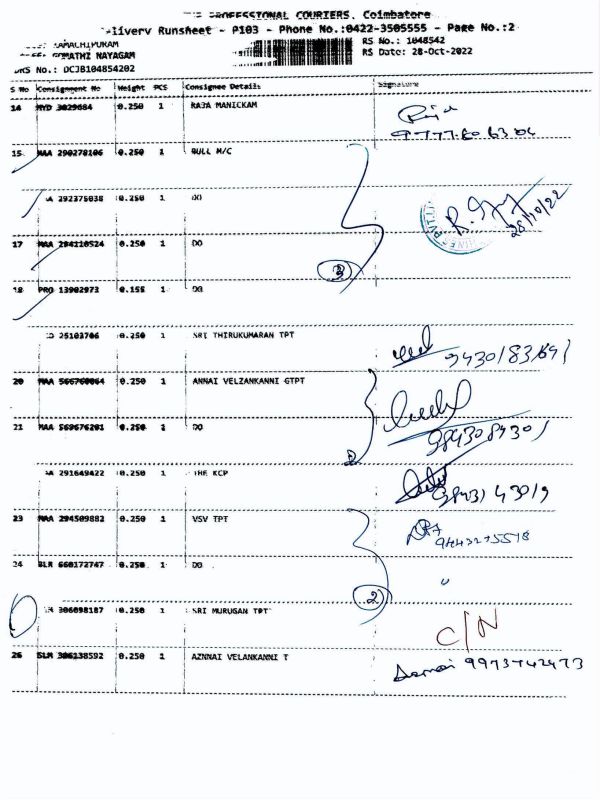 PROFESSIONAL COURIERS, Coimbatore
Runsheet - P103 - Phone No.:0422-3505555 - Page No.:2
RAMACHIPURAM
RS No.: 1048542
GOMATHI NAYAGAM
RS Date: 28-Oct-2022
DRS No.: DCJB104854202
S No Consignment No Weight PCS Consignee Details Signature
14 HYD 3029684 0.250 1 RAJA MANICKAM
15 MAA 290278106 0.250 1 BULL M/C
292375038 0.250 1 DO
28/10/22
17 MAA 294110524 0.250 1 DO
3
18 PRO 13902973 0.155 1 DO
25103706 0.250 1 SRI THIRUKUMARAN TPT
20 MAA 566760064 0.250 1 ANNAI VELZANKANNI GTPT
21 MAA 569676201 0.250 1 DO
9843084301
291649422 0.250 1 THE KCP
9843143019
23 MAA 294509882 0.250 1 VSV TPT
24 BLR 660172747 0.250 1 DO
2
306098187 0.250 1 SRI MURUGAN TPT
C/N
26 SLM 306138592 0.250 1 AZNNAI VELANKANNI T
9973742473